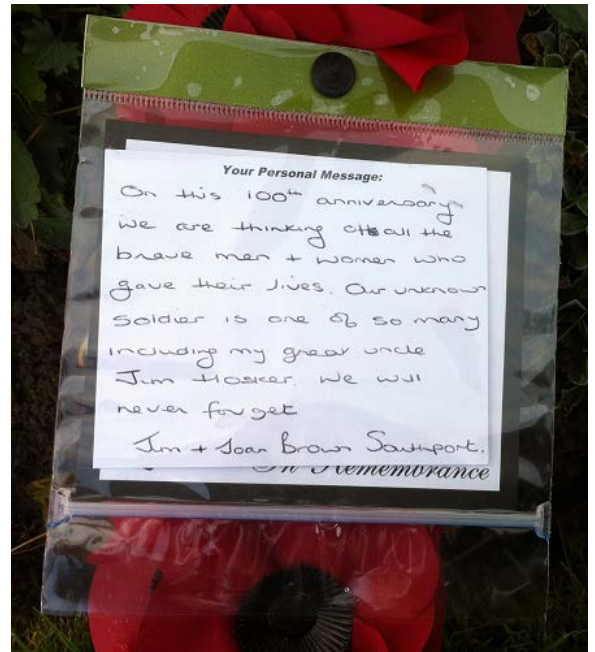 Your Personal Message:
On this 100th anniversary
we are thinking of all the
brave men + women who
gave their lives. Our unknown
soldier is one of so many
including my great uncle
Jim Hosker. We will
never forget
Jim + Joan Brown Southport.
In Remembrance